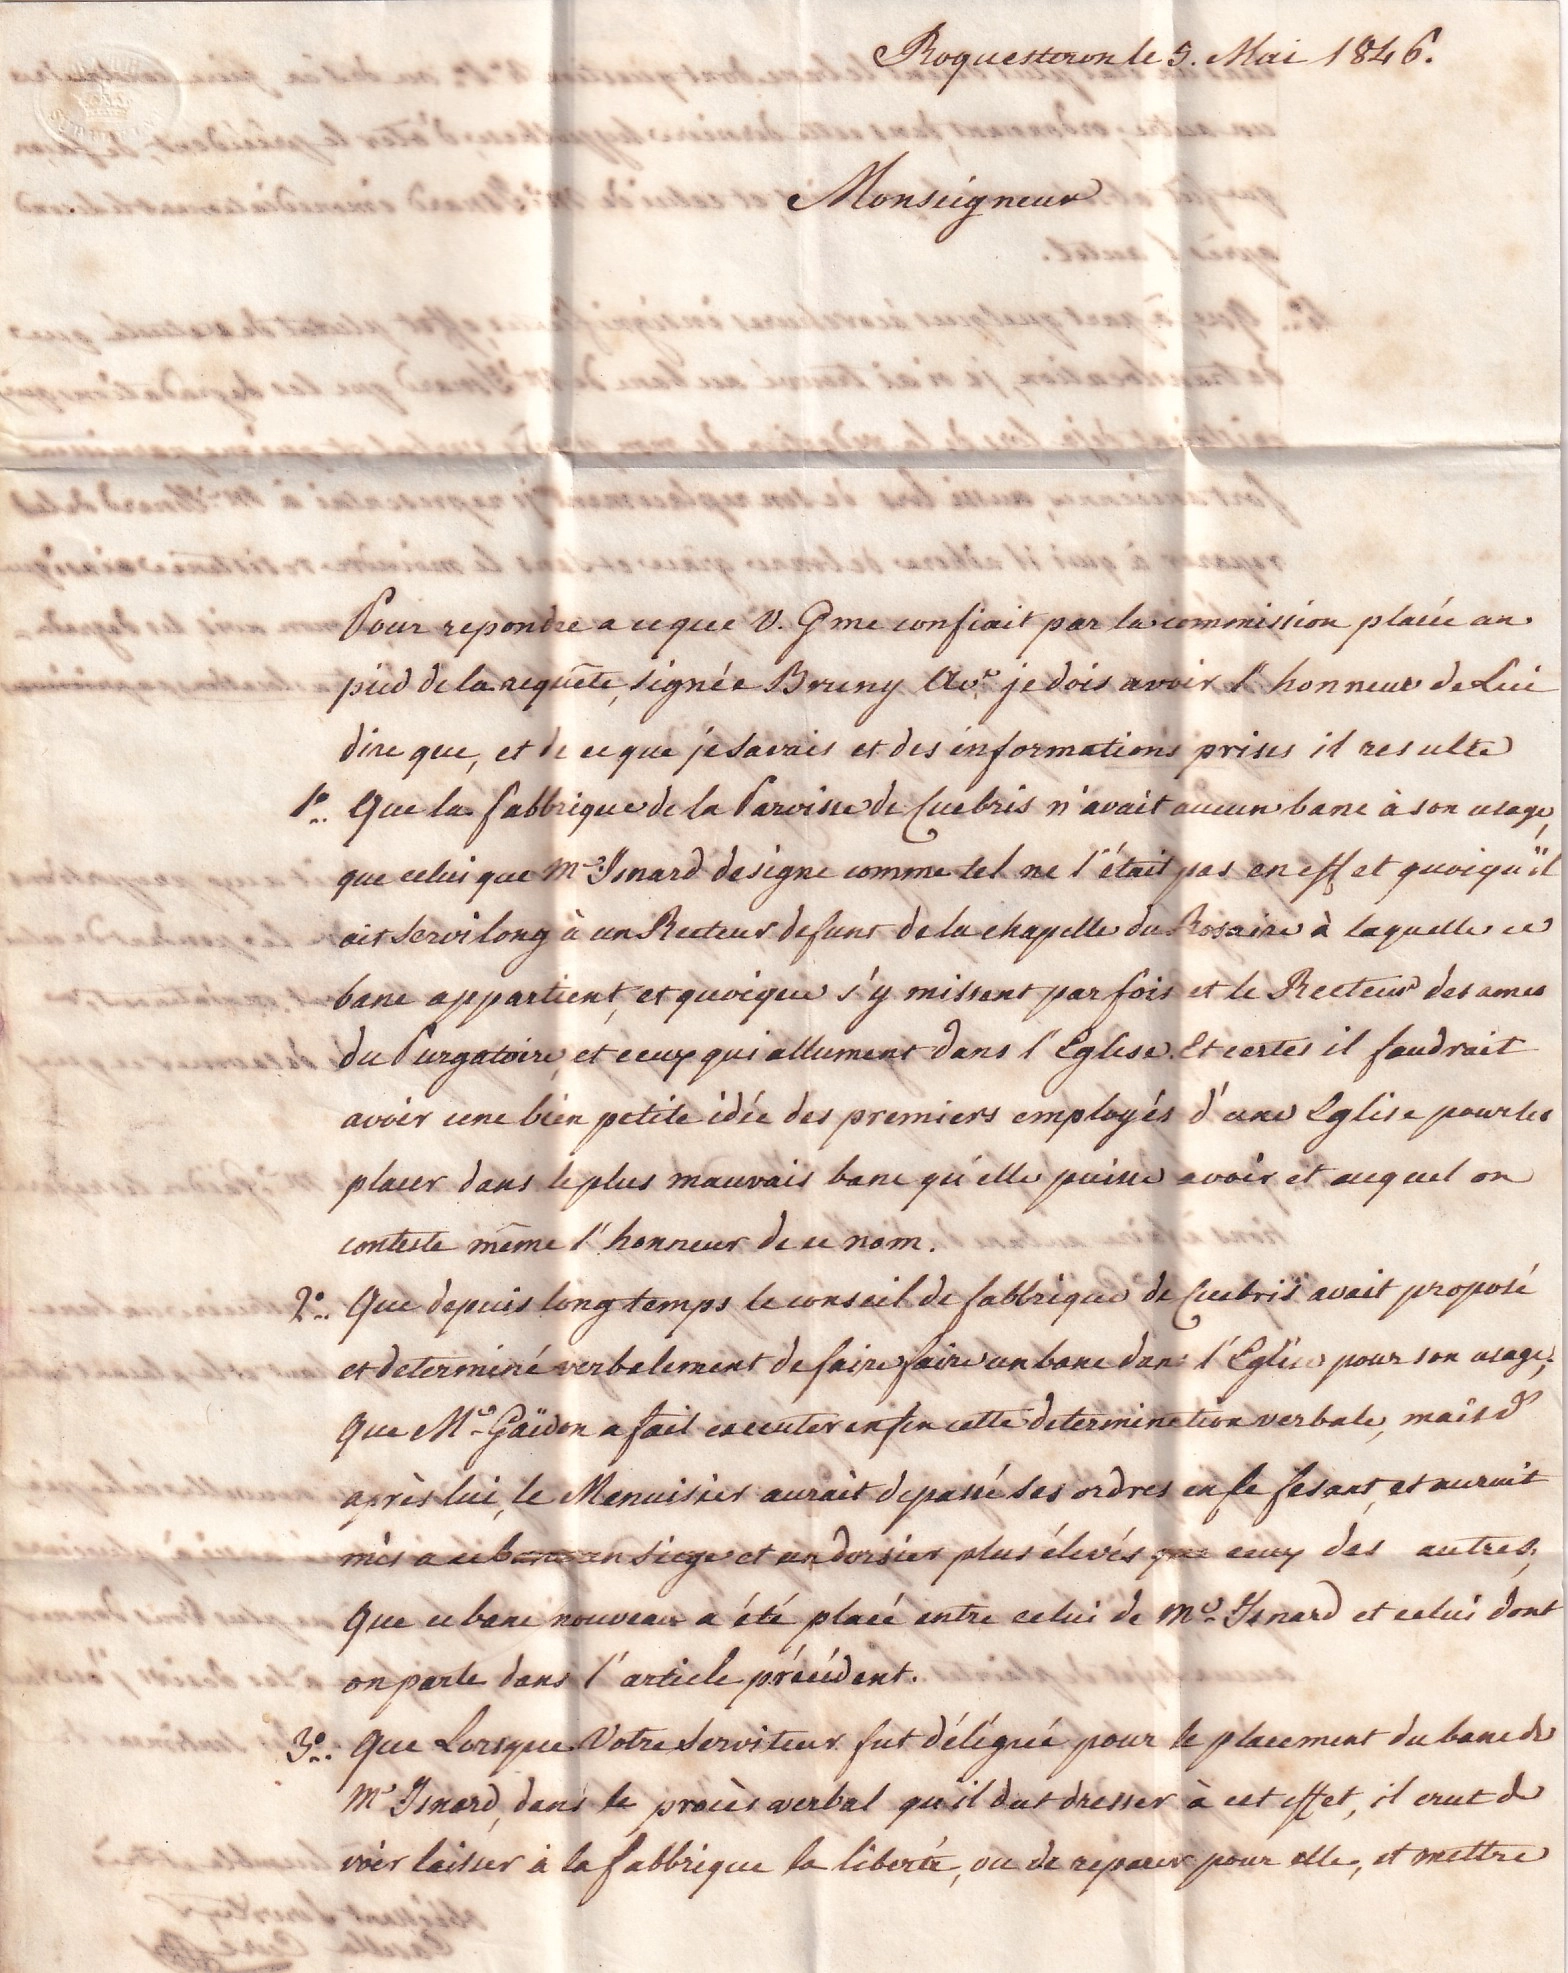 Roquesteron le 5. Mai 1846.
Monseigneur
Pour repondre a ce que V. G me confiait par la commission placée au
pied de la requête, signée Bruny Av.t je dois avoir l'honneur de Lui
dire que, et de ce que je savais et des informations prises il resulte
1.° Que la fabbrique de la Paroisse de Cuebris n'avait aucun banc à son usage,
que celui que Mr Isnard designe comme tel ne l'était pas en effet quoiqu'il
ait servi long à un Recteur defunt de la chapelle du Rosaire à laquelle ce
banc appartient, et quoique s'y missent par fois et le Recteur des ames
du Purgatoire, et ceux qui allument dans l'Eglise. Et certes il faudrait
avoir une bien petite idée des premiers employés d'une Eglise pour les
placer dans le plus mauvais banc qu'elle puisse avoir et auquel on
conteste même l'honneur de ce nom.
2.° Que depuis long temps le conseil de fabbrique de Cuebris avait proposé
et determiné verbalement de faire faire un banc dans l'Eglise pour son usage;
Que Mr Gaïdon a fait executer enfin cette determination verbale, mais d'
après lui, le Menuisier aurait depassé ses ordres en le fesant, et aurait
mis a ce banc un siege et un dorsier plus élevés que ceux des autres;
Que ce banc nouveau a été placé entre celui de Mr Isnard et celui dont
on parle dans l'article précédent.
3.° Que Lorsque Votre Serviteur fut délégué pour le placement du banc de
Mr Isnard, dans le procès verbal qu'il dut dresser à cet effet, il crut de
voir laisser à la fabbrique la liberté, ou de reparer pour elle, et mettre